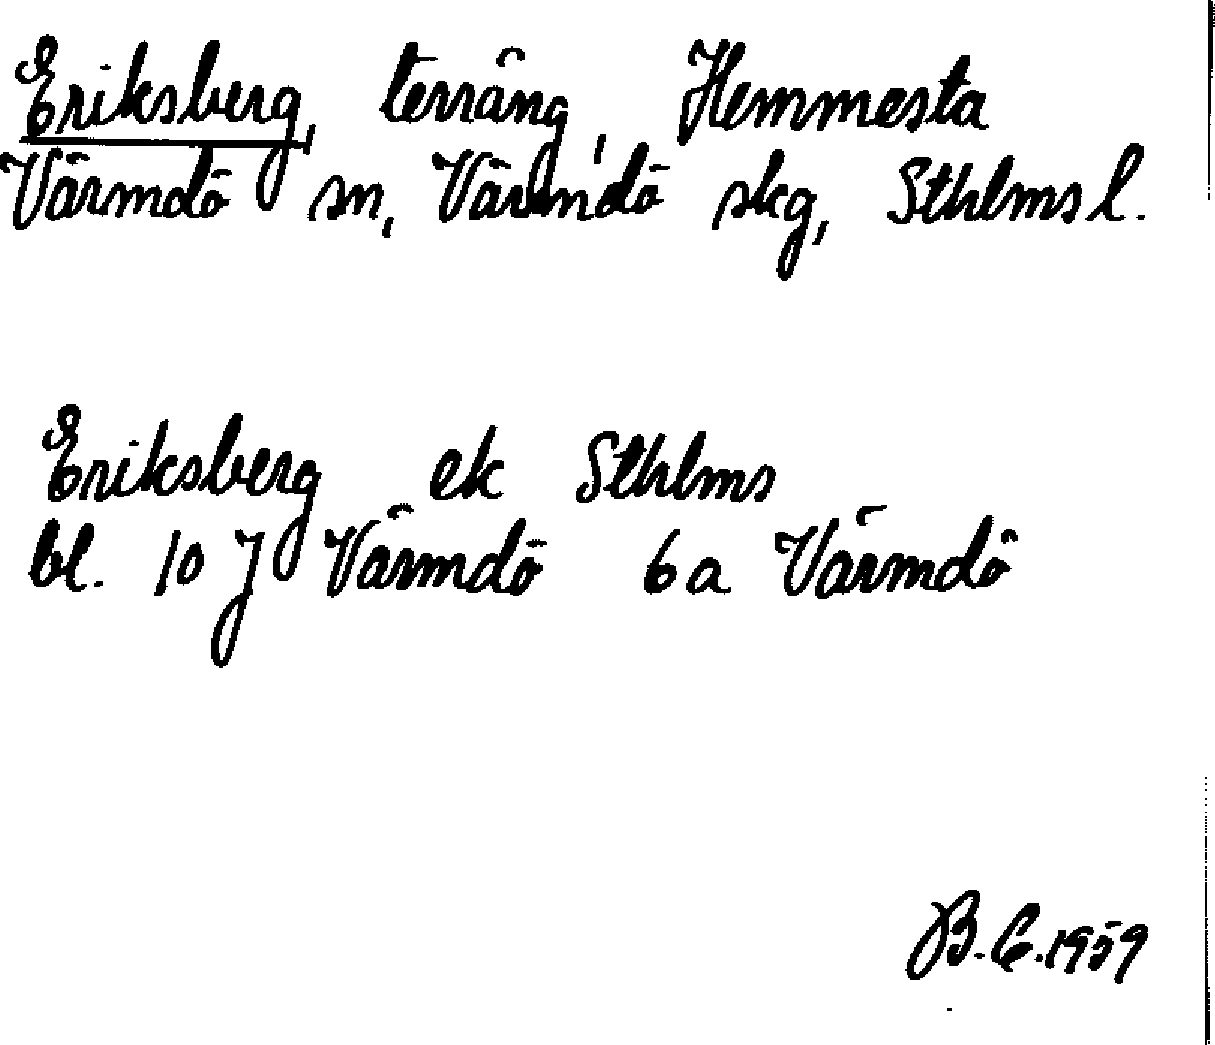 Eriksberg, terräng, Hemmesta
Värmdö sn, Värmdö skg, Sthlms l.
Eriksberg ek Sthlms
bl. 10 J Värmdö 6a Värmdö
B.C.1959